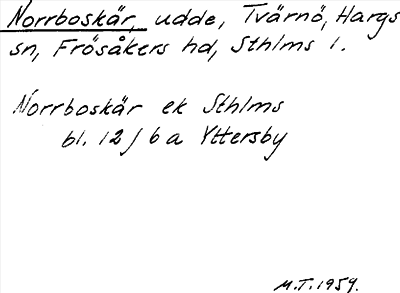 Norrboskär, udde, Tvärnö, Hargs
sn, Frösåkers hd, Sthlms l.
Norrboskär ek Sthlms
bl. 12/6a Yttersby
M.T. 1959.